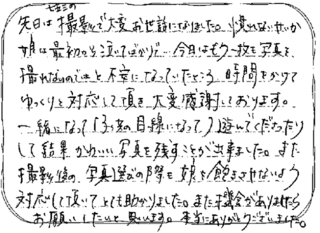 先日は撮影で大変お世話になりました。慣れないせいか
娘は最初のうち泣いてばかりで…今日はもう一枚も写真を
撮れないのでは…と不安になっていたところ、時間をかけて
ゆっくりと対応して頂き、大変感謝しております。
一緒になって(3才の目線になって)遊んでくださったり
して結果かわいい写真を残すことが出来ました。また
撮影後の写真選びの際も娘を飽きさせないよう
対応して頂いてとても助かりました。また機会がありましたら
お願いしたいと思います。本当にありがとうございました。